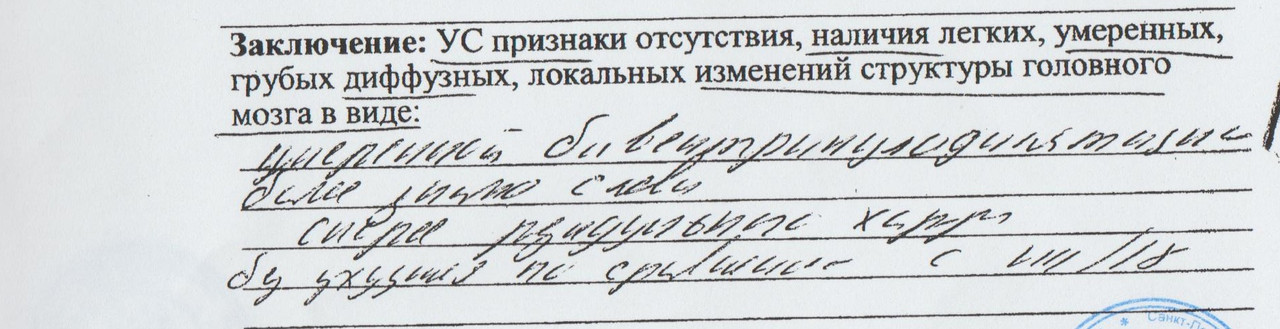 Заключение: УС признаки отсутствия, наличия легких, умеренных,
грубых диффузных, локальных изменений структуры головного
мозга в виде:
умеренной бивентрикулодилятации
более слева
скорее резидуального хар-ра
без ухудшения по сравнению с /18
Санкт-П